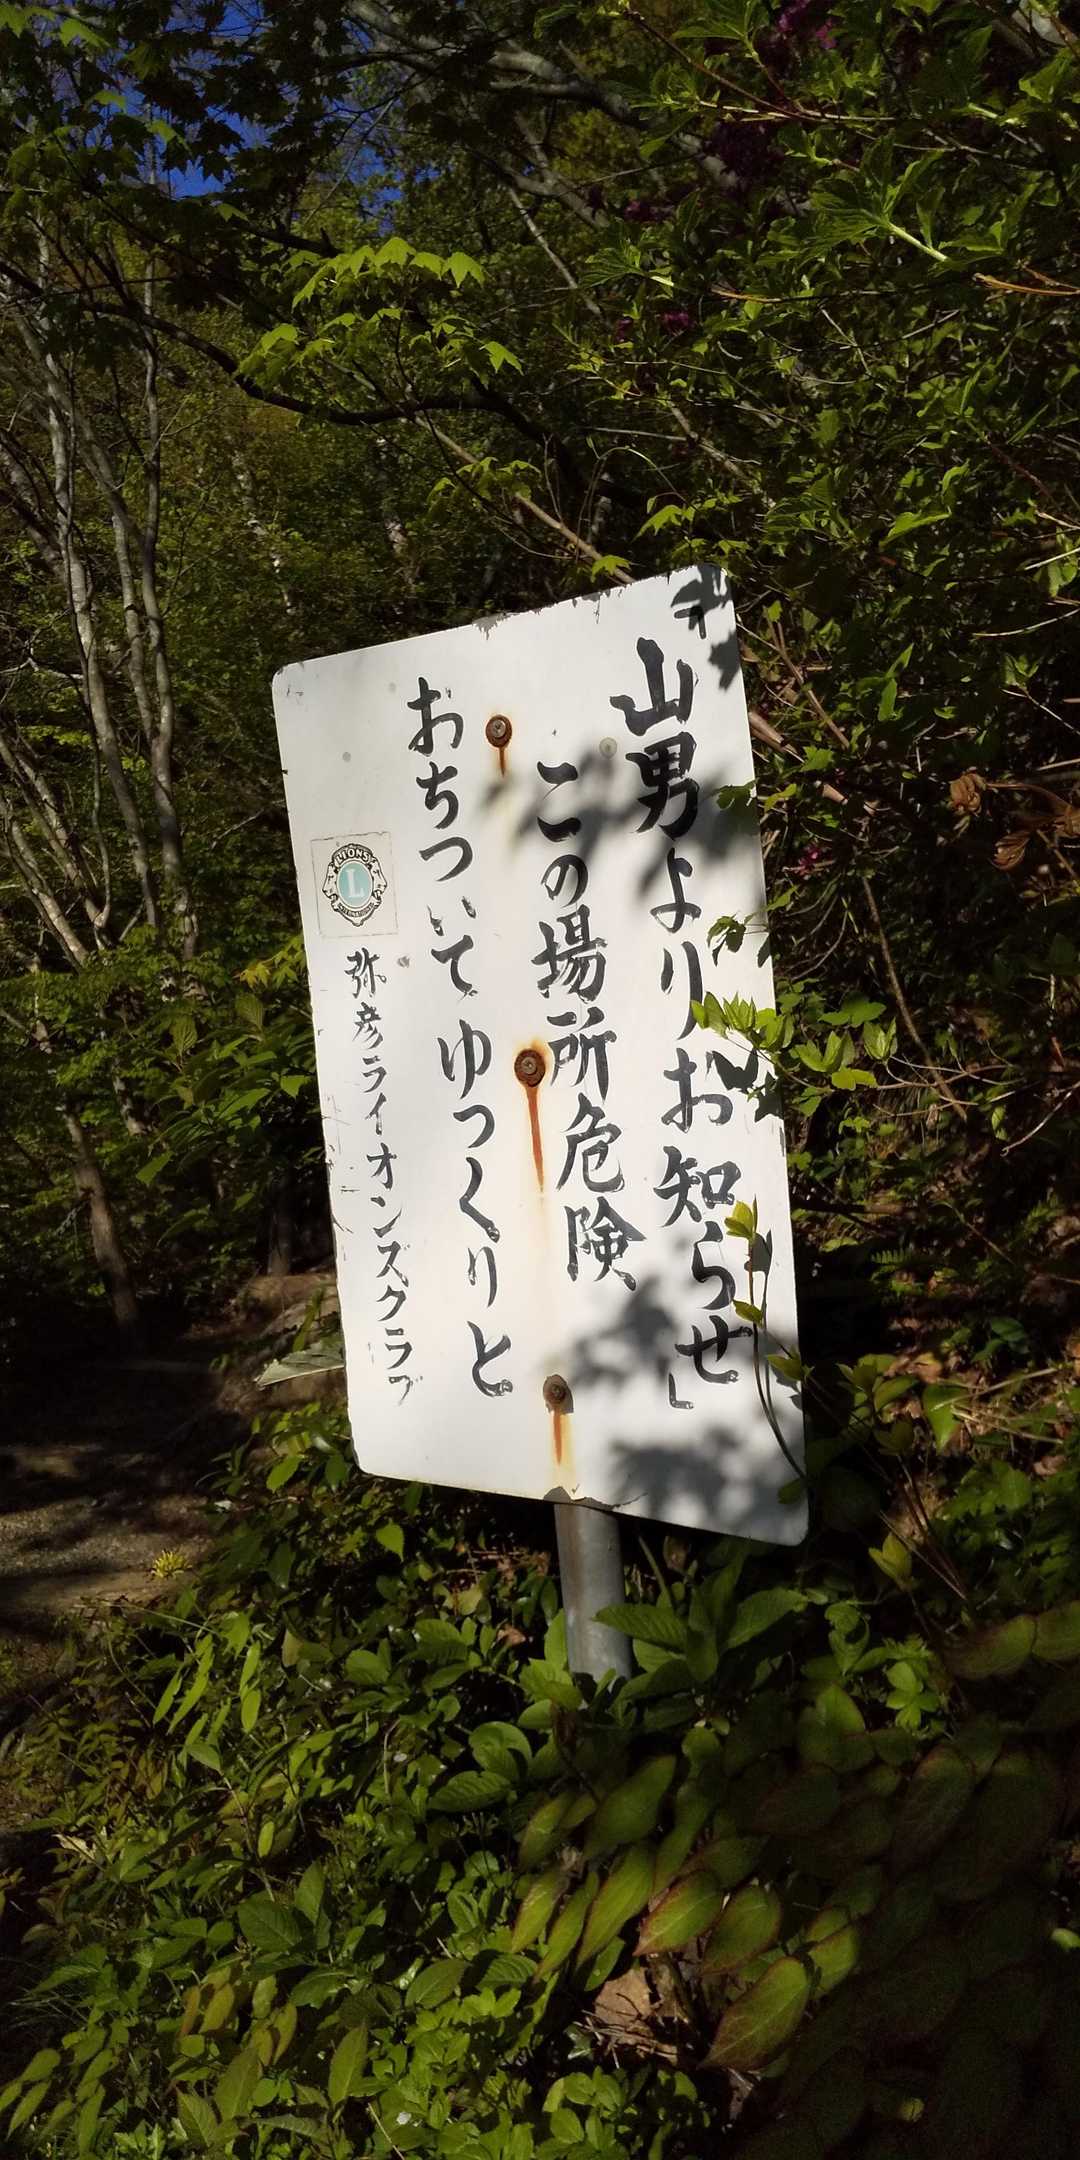 「山男よりお知らせ」
この場所危険
おちついてゆっくりと
LIONS
L
INTERNATIONAL
弥彦ライオンズクラブ